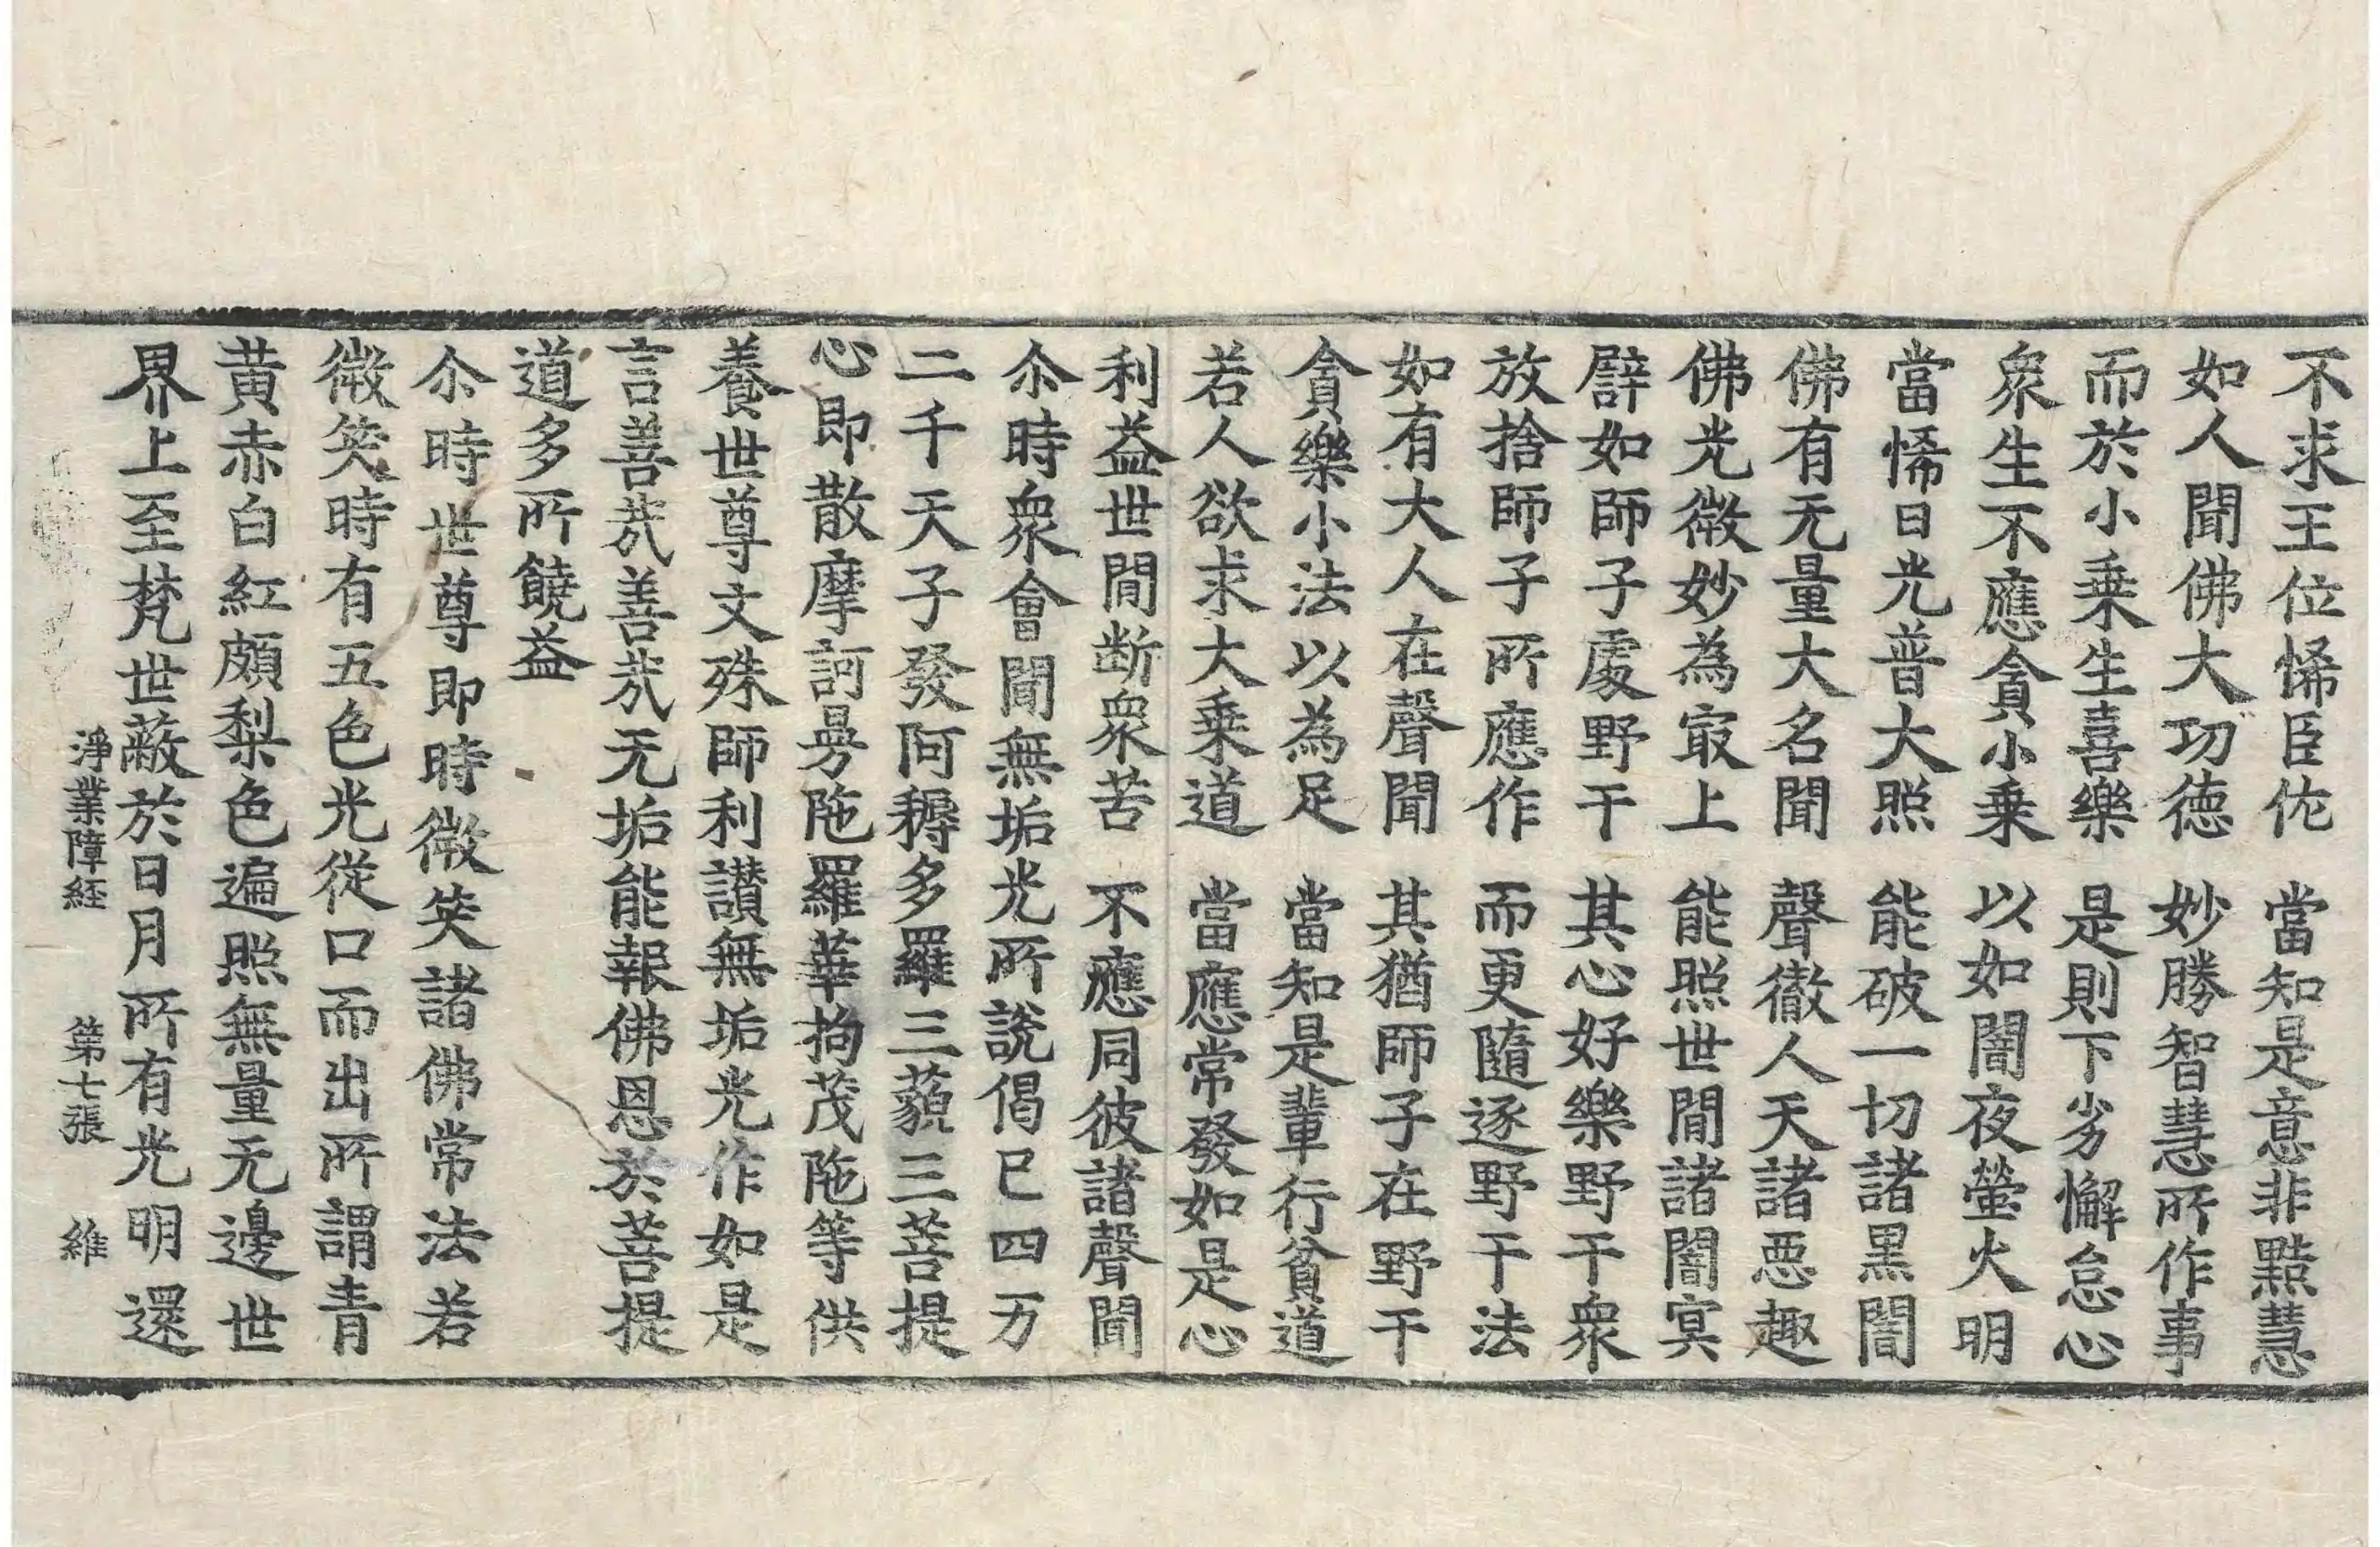 不求王位悕臣佐　當知是意非黠慧
如人聞佛大功德　妙勝智慧所作事
而於小乗生喜樂　是則下劣懈怠心
衆生不應貪小乗　以如闇夜螢火明
當悕日光普大照　能破一切諸黒闇
佛有无量大名聞　聲徹人天諸惡趣
佛光微妙為㝡上　能照世間諸闇冥
譬如師子處野干　其心好樂野干衆
放捨師子所應作　而更隨逐野干法
如有大人在聲聞　其猶師子在野干
貪樂小法以為足　當知是輩行貧道
若人欲求大乗道　當應常發如是心
利益世間断衆苦　不應同彼諸聲聞
尒時衆會聞無垢光所說偈已四万
二千天子發阿耨多羅三藐三菩提
心即散摩訶曼陁羅華拘茂陁等供
養世尊文殊師利讃無垢光作如是
言善㢤善㢤无垢能報佛恩於菩提
道多所饒益
尒時世尊即時微笑諸佛常法若
微笑時有五色光從口而出所謂青
黃赤白紅頗梨色遍照無量无邊世
界上至梵世蔽於日月所有光明還
淨業障経　第七張　維